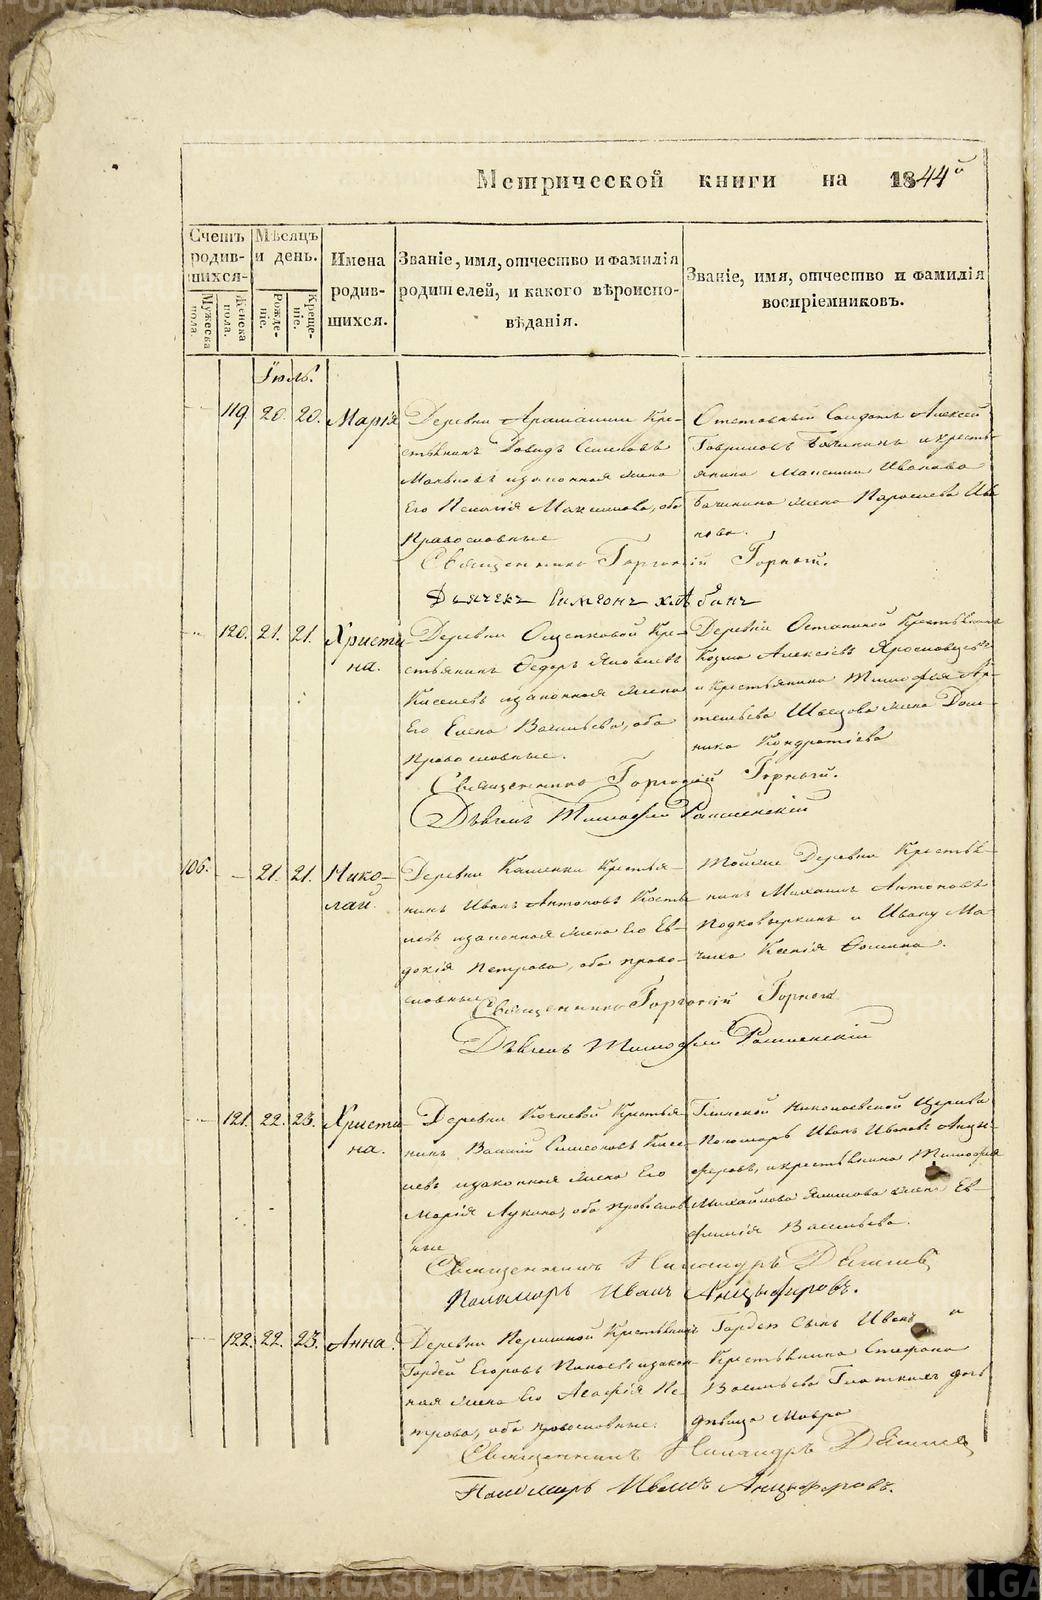 Метрической книги на 1844й
Счетъ родив-шихся-
Мужеска пола.
Женска пола.
Мѣсяцъ и день.
Рожде-ніе.
Креще-ніе.
Имена родив-шихся.
Званіе, имя, отчество и фамилія родителей, и какого вѣроиспо-вѣданія.
Званіе, имя, отчество и фамилія воспріемниковъ.
Іюль.
119. 20. 20. Марія
Деревни Арамашки Кре-
стьянинъ Давидъ Семеновъ
и законная жена
Его Пелагія Максимова, оба
Православные
Отставный Солдатъ Алексей
Гавриловъ Бачининъ и кресть-
янина Максима Иванова
Бачинина жена Парасковья Ива
нова.
Священникъ Горгоній Горный.
Дьячекъ Симеонъ
120. 21. 21. Христи-
на.
Деревни Ощепковой Кре-
стьянинъ Ѳедоръ Яковлевъ
Киселевъ и законная жена
Его Елена Васильева, оба
православные.
Деревни Останиной Крестьянинъ
Козма Алексіевъ Ярославцевъ
и Крестьянина Тимофея Ар-
темьева Швецова жена Дом-
ника Кондратіева
Священникъ Горгоній Горный.
Дьячекъ Тимофей Раменскій
106. - 21. 21. Нико-
лай.
Деревни Каменки Крестья-
нинъ Иванъ Антоновъ Косты
левъ и законная жена Его Ев-
докія Петрова, оба право-
славные
Тойже Деревни Крестья-
нинъ Михаилъ Антоновъ
Подковыркинъ и Ивану Ма-
чиха Ксенія Фомина.
Священникъ Горгоній Горный
Дьячекъ Тимофей Раменскій
121. 22. 23. Христи-
на.
Деревни Кочневой Крестья-
нинъ Василій Симеоновъ Кисе
левъ и законная жена Его
Марія Лукина, оба православ
ные
Глинской Николаевской Церкви
Пономарь Иванъ Ивановъ Анцы-
феровъ, и крестьянина Тимофея
Михайлова Якимова жена Ев-
фимія Васильева.
Священникъ Никандръ
Пономарь Иванъ Анцыферовъ.
122. 22. 23. Анна.
Деревни Першиной Крестьянинъ
Гордей Егоровъ Панаевъ и закон
ная жена Его Агафія Пе
трова, оба православные.
Гордея сынъ Иванъ и
Крестьянина Стефана
Васильева Гладкихъ дочь
дѣвица Мавра
Священникъ Никандръ
Пономарь Иванъ Анцыферовъ.
METRIKI.GASO-URAL.RU